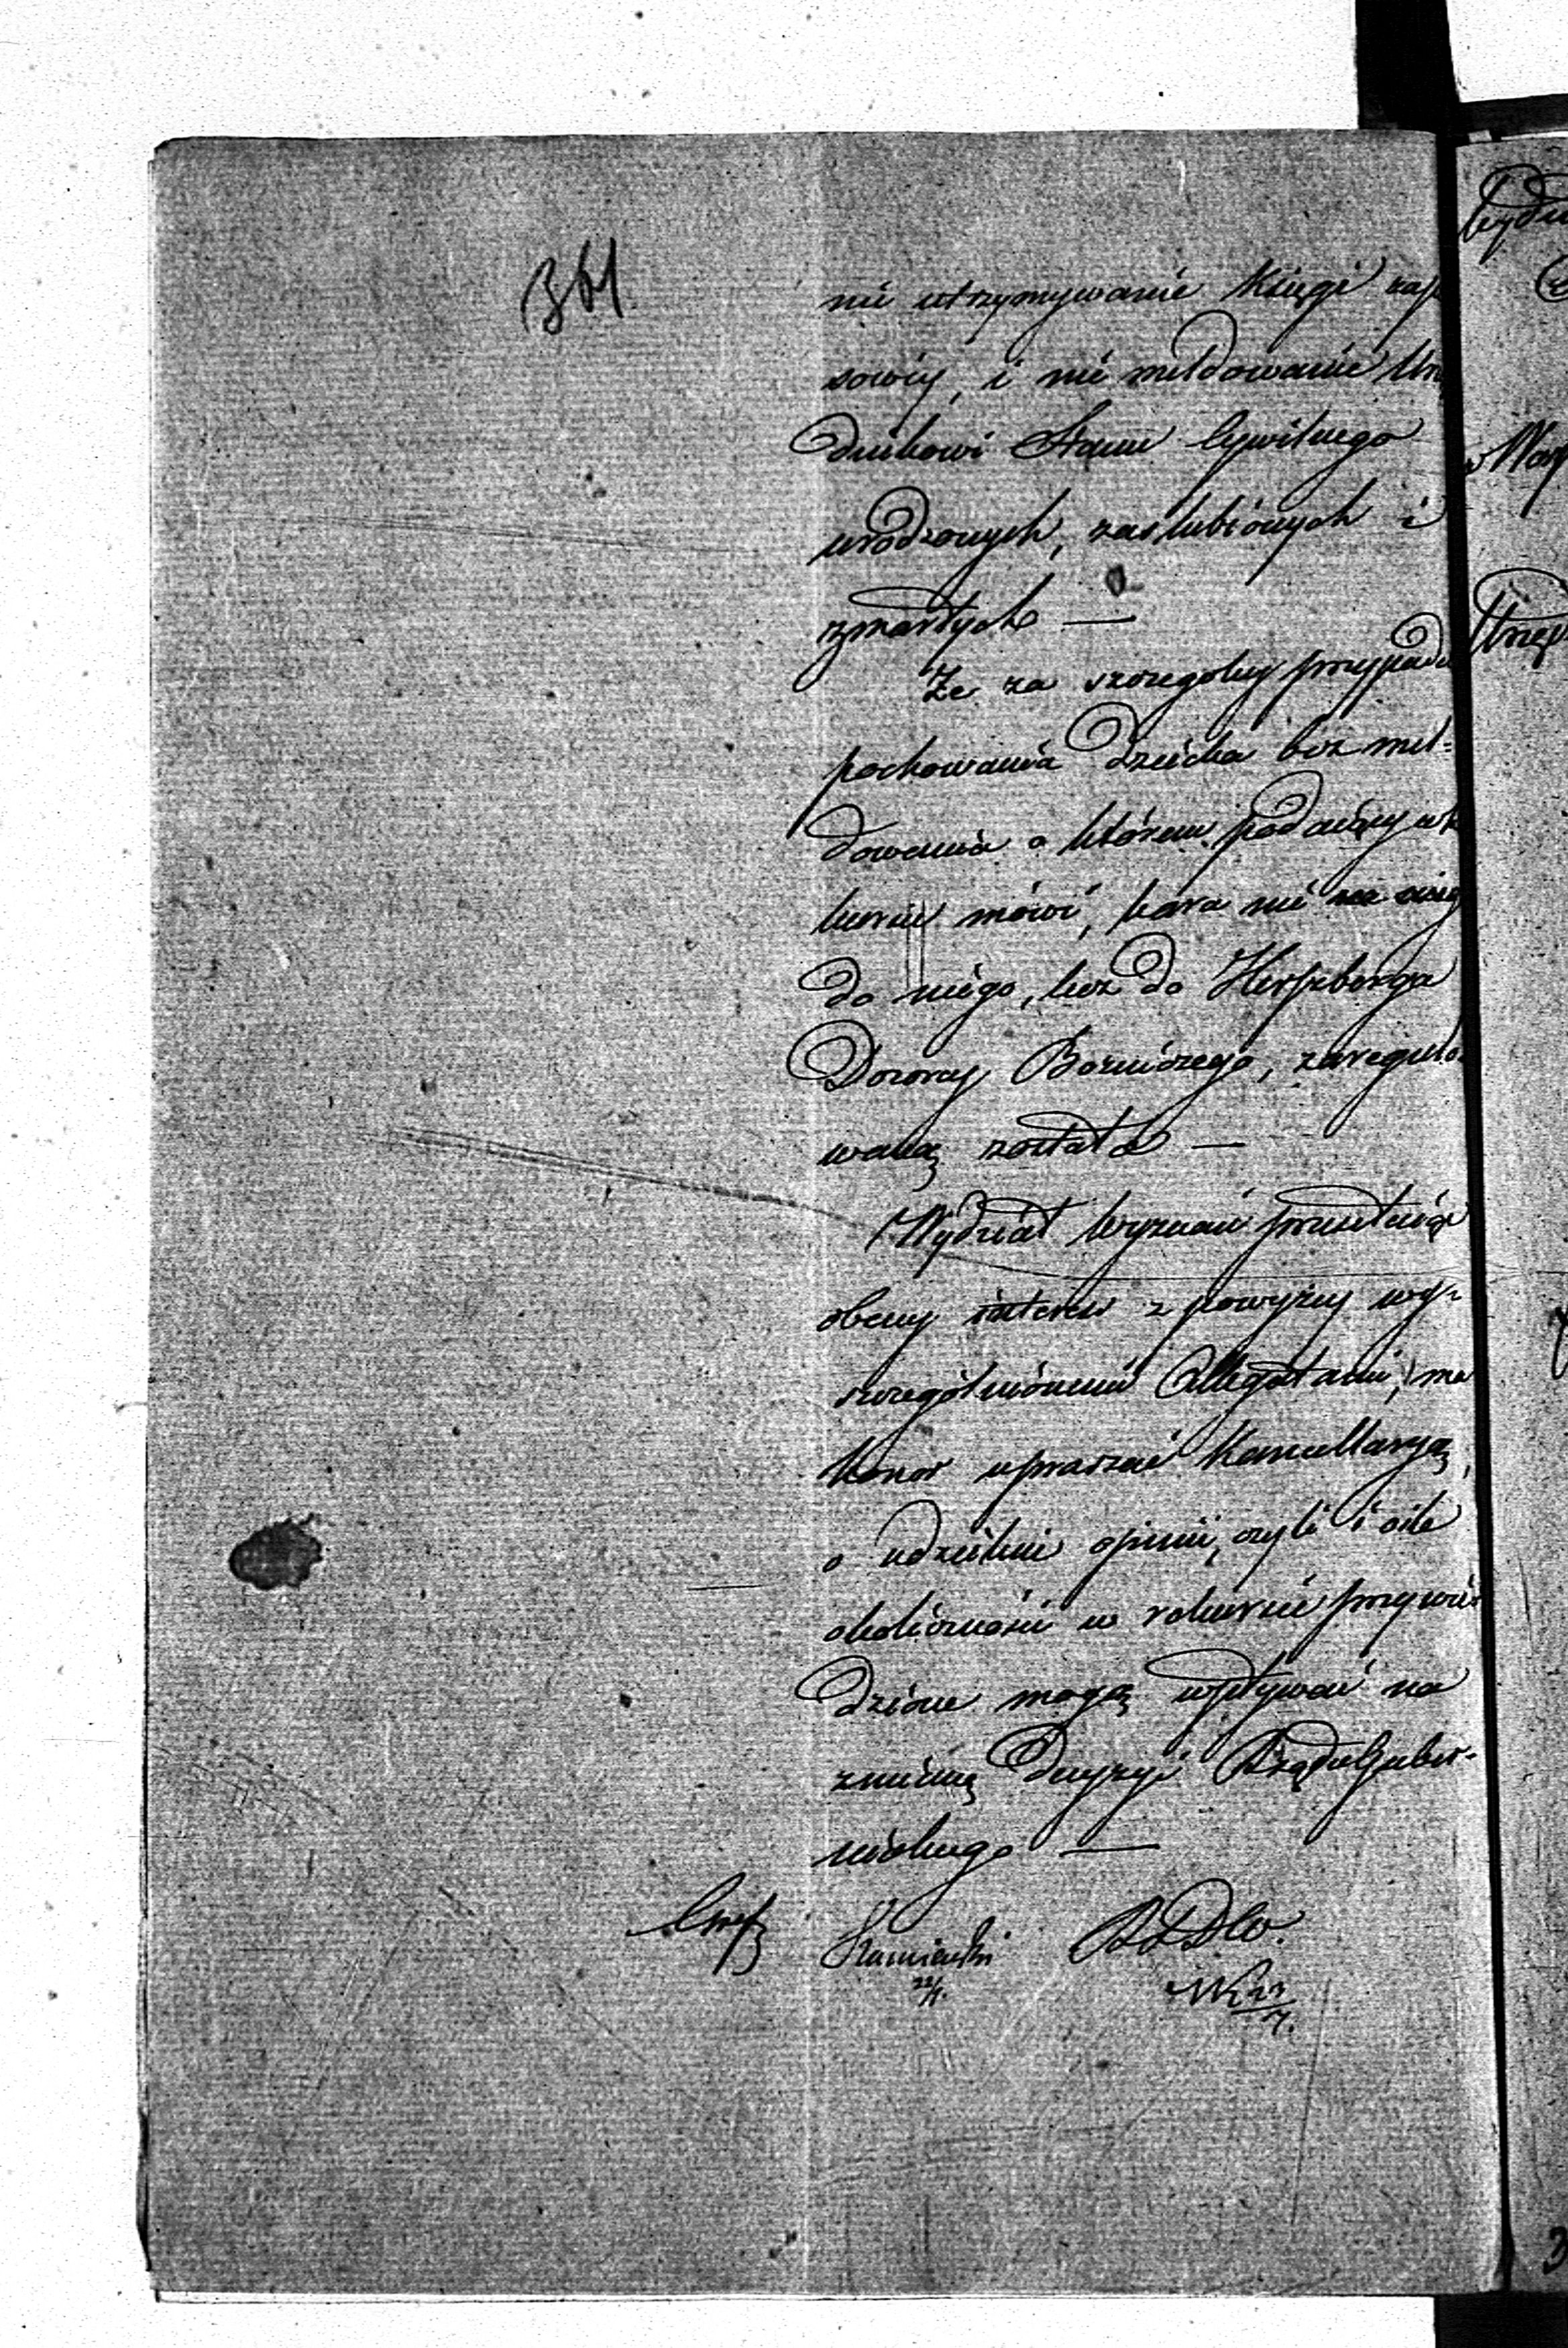 361
nie utrzymywanie Księgi zap
sowéy, i nie meldowanie Urzę
dnikowi Stanu Cywilnego
urodzonych, zaslubionych i
zmarłych —
Że za szczególny przypadek
pochowania dziecka bez mel=
dowania o którem podaiący w re
kursie mówi, kara nie na niego
do niego, lecz do Herszberga
Dozorcy Bożniczego, zaregulo=
waną została —
Wydział Wyznań przesełaiąc
obecny interes z powyżey wy=
szczególnionemi Allegatami, ma
honor upraszać Kancellaryą,
o udzielenie opinii, czyli i o ile
okoliczności w rekursie przywie
dzione mogą wpływać na
zmianę Decyzyi Rządu Guber=
nialnego —
Kamieński
22/7.